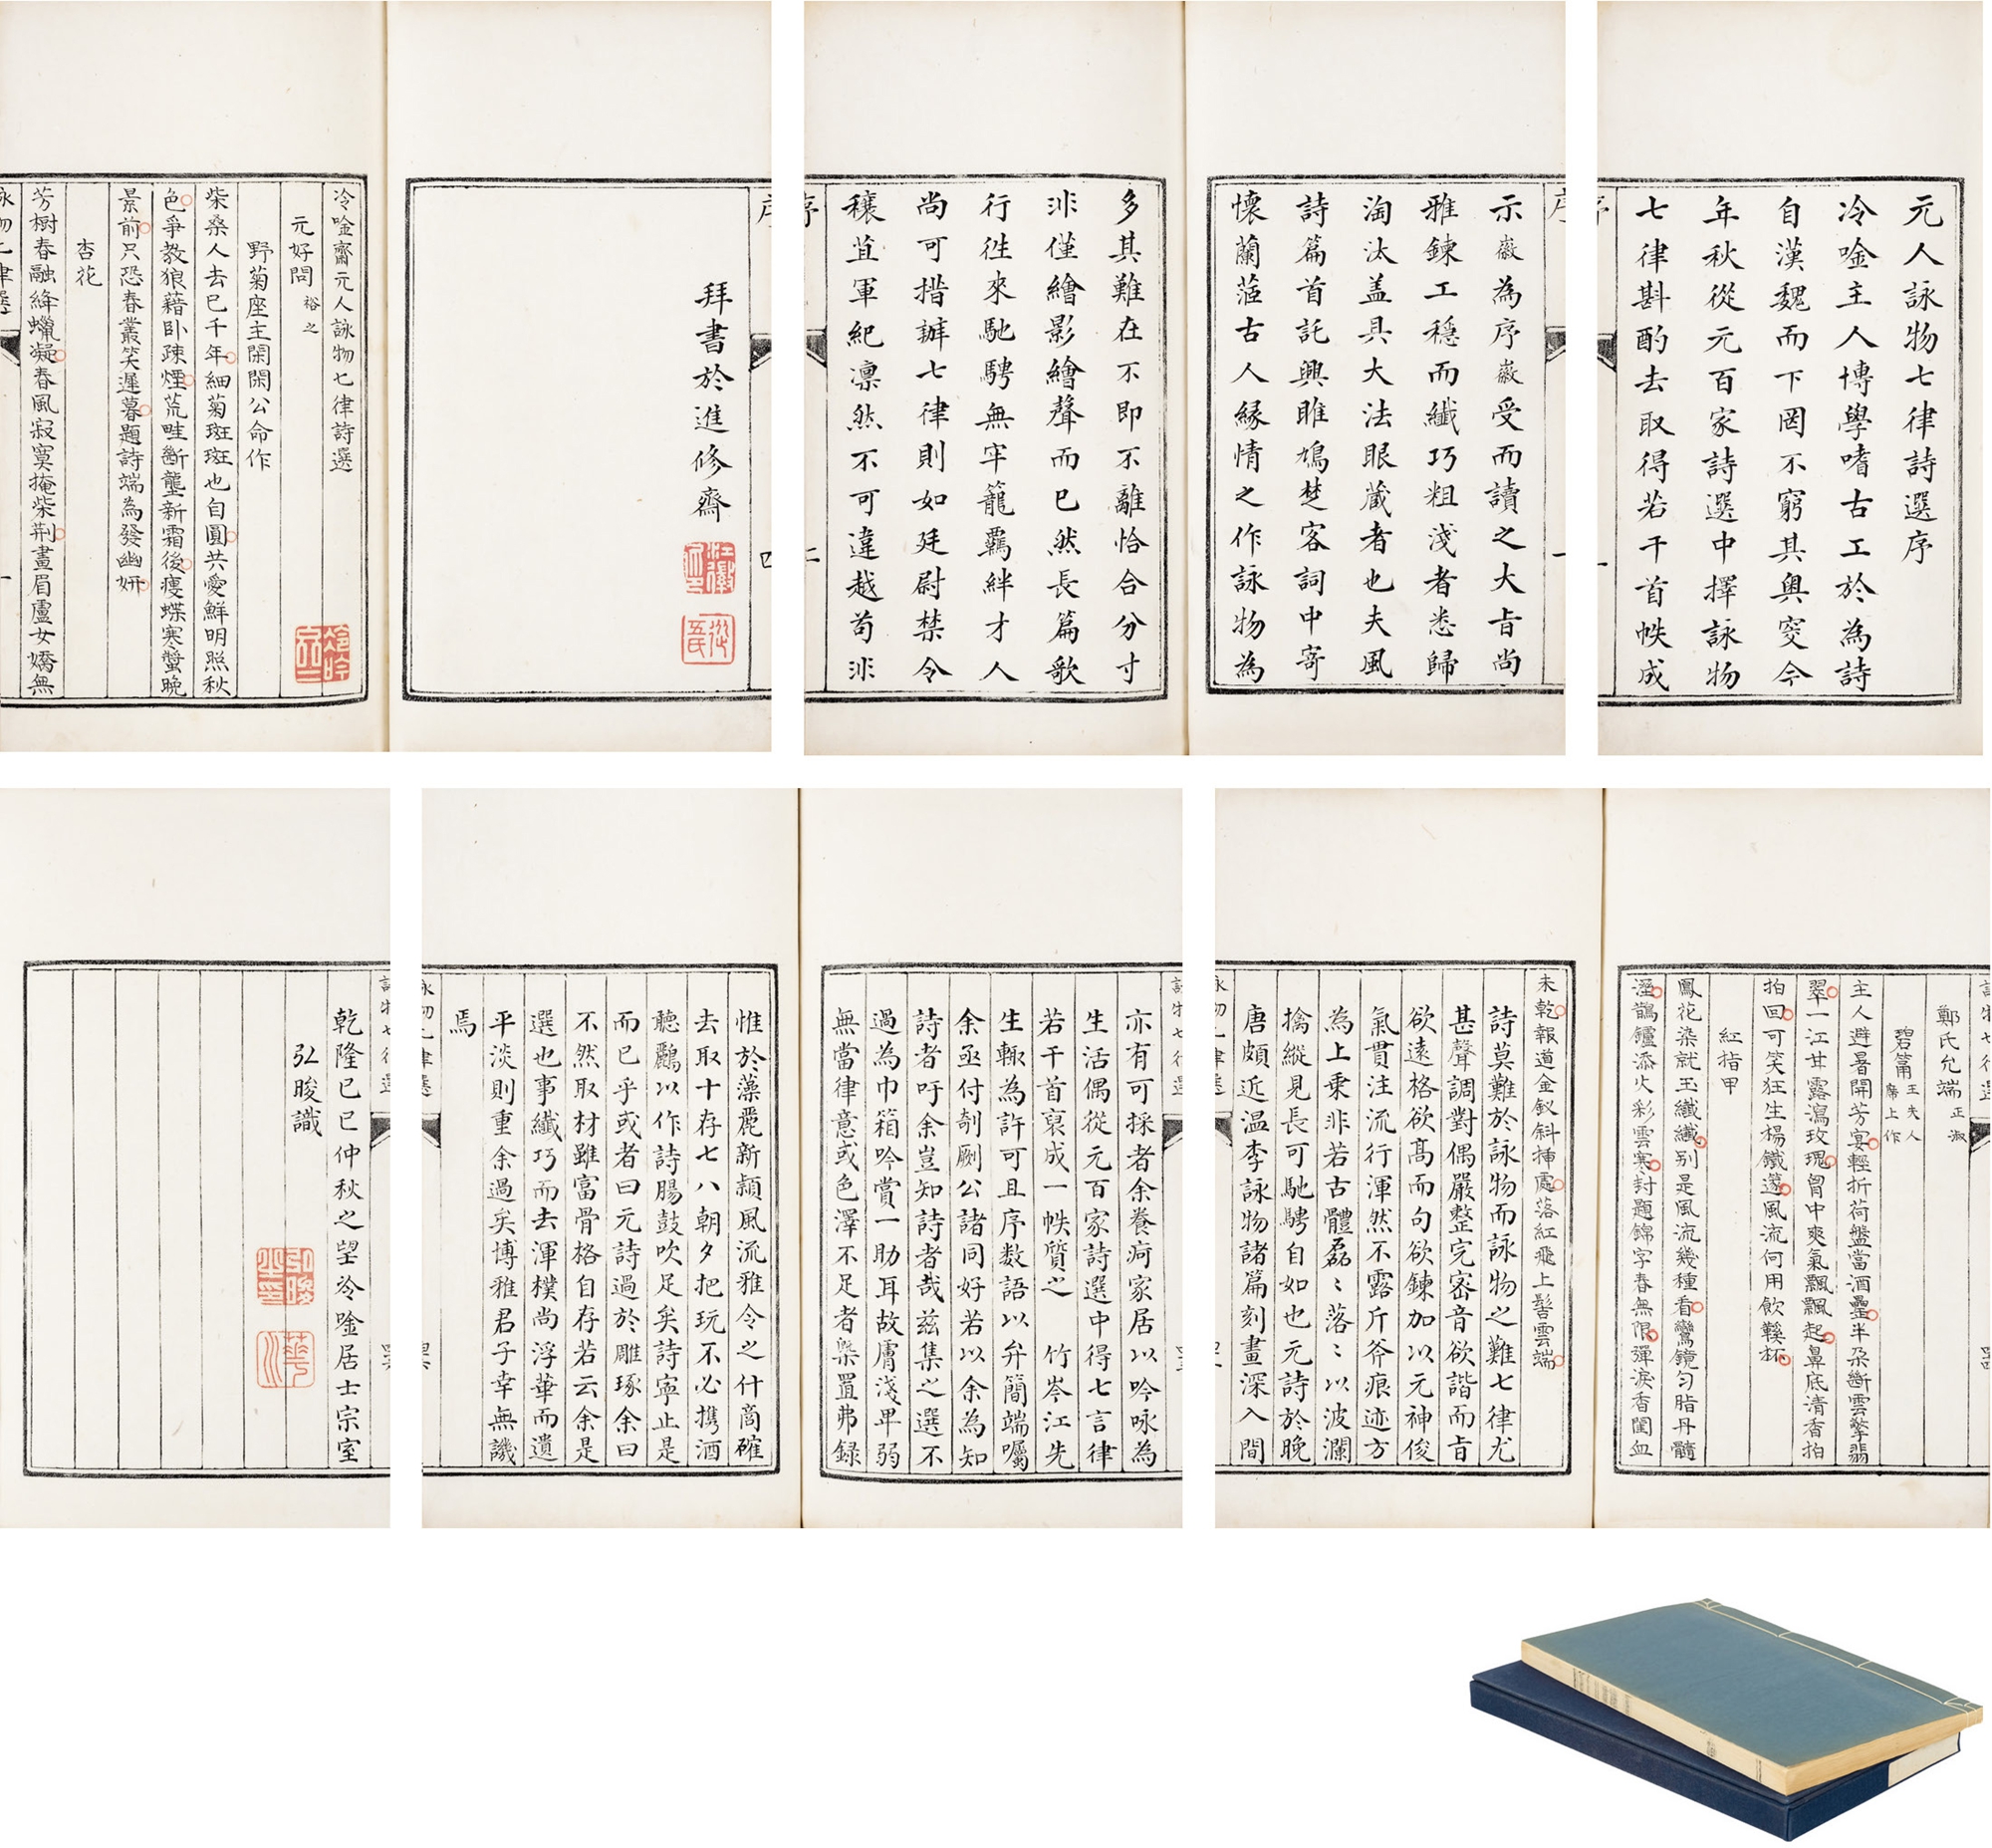 元人詠物七律詩選序
冷唫主人博學嗜古工於為詩
自漢魏而下罔不窮其奧窔今
年秋從元百家詩選中擇詠物
七律斟酌去取得若干首帙成
序
一
示徽為序徽受而讀之大旨尚
雅鍊工穩而纖巧粗淺者悉歸
淘汰盖具大法眼蔵者也夫風
詩篇首託興雎鳩楚客詞中寄
懷蘭蒞古人緣情之作詠物為
多其難在不即不離恰合分寸
非僅繪影繪聲而已然長篇歌
行往來馳騁無牢籠羈絆才人
尚可措辦七律則如廷尉禁令
穰苴軍紀凛然不可違越苟非
序
二
序
四
拜書於進修齋
江徽之印
冷唫齋元人詠物七律詩選
元好問 裕之
野菊座主閑閑公命作
柴桑人去已千年細菊斑斑也自圓共愛鮮明照秋
色爭教狼藉卧疎煙荒畦斷壟新霜後瘦蝶寒螿晚
景前只恐春叢笑遲暮題詩端為發幽妍
杏花
芳樹春融絳蠟凝春風寂寞掩柴荆畫眉盧女嬌無
詠物七律選
一
冷唫
鄭氏允端 正淑
碧筩 王夫人席上作
主人避暑開芳宴輕折荷盤當酒壘半朶斷雲擎翡
翠一江甘露瀉玫瑰胷中爽氣飄飄起鼻底清香拍
拍回可笑狂生楊鐵邃風流何用飲鞵杯
紅指甲
鳳花染就玉纖纖别是風流幾種看鸞鏡勻脂丹髓
溼鵲鑪添火彩雲寒封題錦字春無限彈淚香閨血
未乾報道金釵斜揷處落紅飛上髻雲端
詩莫難於詠物而詠物之難七律尤
甚聲調對偶嚴整完密音欲諧而旨
欲遠格欲髙而句欲鍊加以元神俊
氣貫注流行渾然不露斤斧痕迹方
為上乗非若古體磊〻落〻以波瀾
擒縱見長可馳騁自如也元詩於晚
唐頗近温李詠物諸篇刻畫深入間
亦有可採者余養疴家居以吟咏為
生活偶從元百家詩選中得七言律
若干首裒成一帙質之 竹岑江先
生輒為許可且序数語以弁簡端囑
余亟付剞劂公諸同好若以余為知
詩者吁余豈知詩者哉兹集之選不
過為巾箱吟賞一助耳故膚淺卑弱
無當律意或色澤不足者槩置弗録
惟於藻麗新頴風流雅令之什商確
去取十存七八朝夕把玩不必擕酒
聽鸝以作詩腸鼓吹足矣詩寧止是
而已乎或者曰元詩過於雕琢余曰
不然取材雖富骨格自存若云余是
選也事纖巧而去渾樸尚浮華而遺
平淡則重余過矣博雅君子幸無譏
焉
乾隆己巳仲秋之望冷唫居士宗室
弘晙識
弘晙